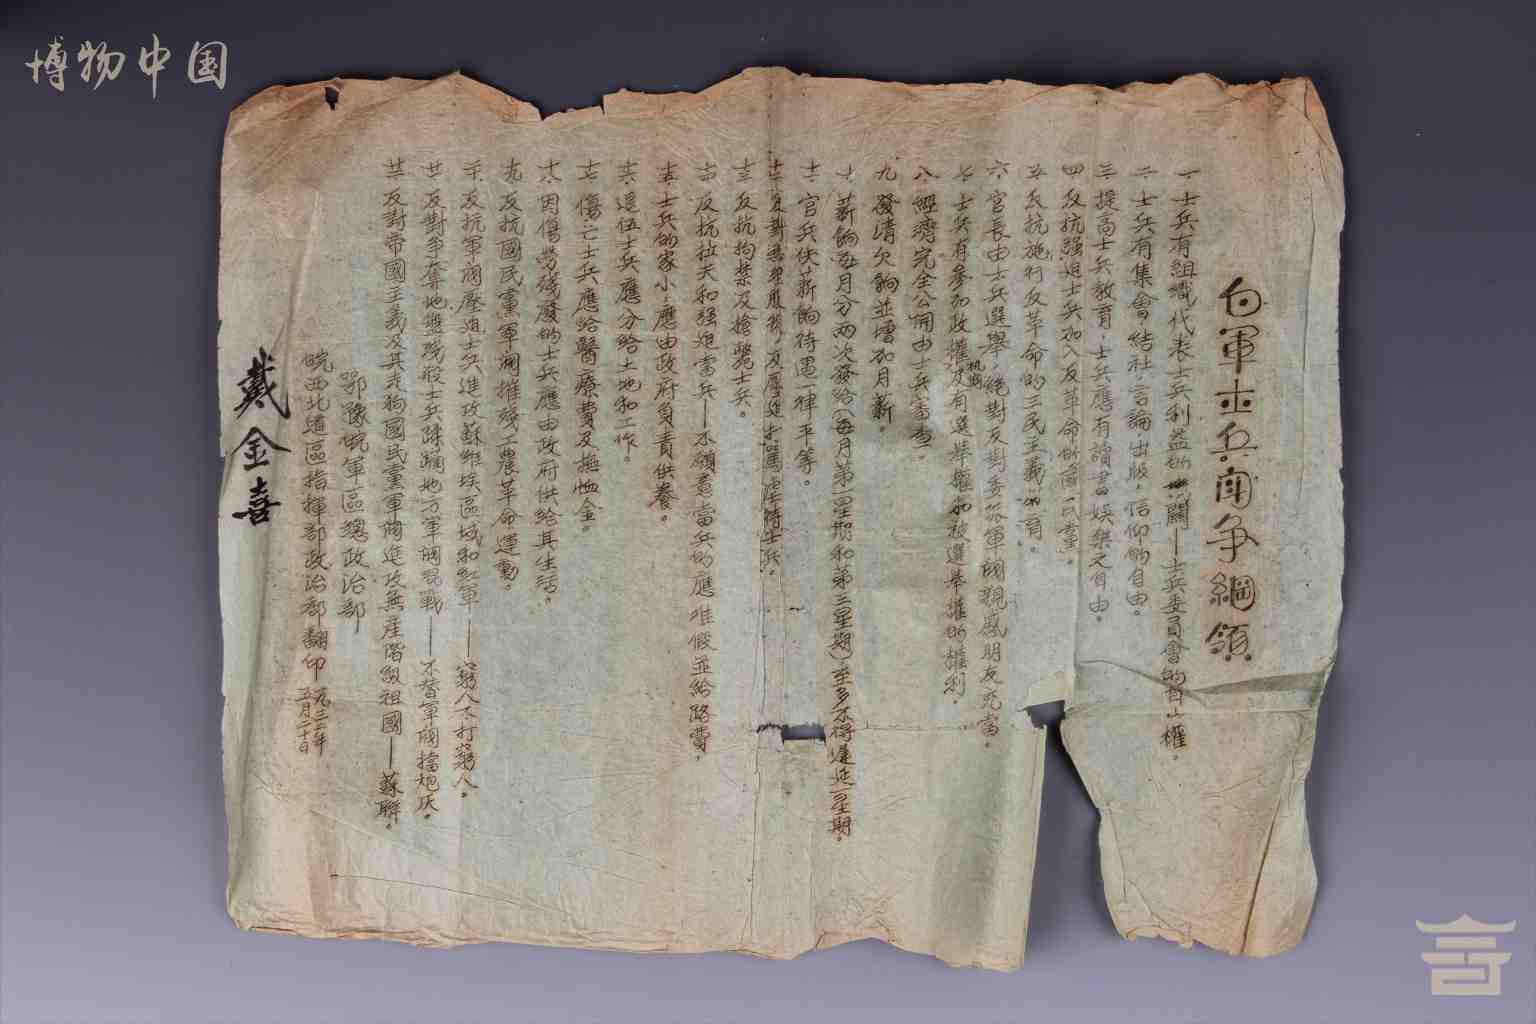 博物中国
白軍士兵鬥争綱領
一 士兵有組織代表士兵利益的機關——士兵委員會的自由權。
二 士兵有集會結社言論出版信仰的自由。
三 提高士兵教育,士兵應有讀書娛樂之自由。
四 反抗强迫士兵加入反革命的國民黨。
五 反抗施行反革命的三民主義的教育。
六 官長由士兵選舉,絕對反對委派軍閥親戚朋友充當。
七 士兵有參加政權機關及有選舉權和被選舉權的權利。
八 經濟完全公開由士兵審查。
九 發清欠餉並增加月薪。
十 薪餉每月分兩次發給(每月第一星期和第三星期)至多不得遲延一星期。
十一 官兵伕薪餉待遇一律平等。
十二 反對 反壓迫打罵虐待士兵。
十三 反抗拘禁及搶斃士兵。
十四 反抗拉夫和强迫當兵——不願意當兵的應准假並給路費,
十五 士兵的家小應由政府負責供養。
十六 退伍士兵應分給土地和工作。
十七 傷亡士兵應給醫療費及撫恤金。
十八 因傷勞殘廢的士兵應由政府供給其生活。
十九 反抗國民黨軍閥摧殘工農革命運動。
二十 反抗軍閥壓迫士兵進攻蘇維埃區域和紅軍——窮人不打窮人。
廿一 反對爭奪地盤殘殺士兵蹂躪地方軍閥混戰——不替軍閥擋炮灰。
廿二 反對帝國主義及其走狗國民黨軍閥進攻無産階級祖國——蘇聯。
鄂豫皖軍區總政治部
皖西北道區指揮部政治部翻印 一九三三年五月二十日
戴金喜